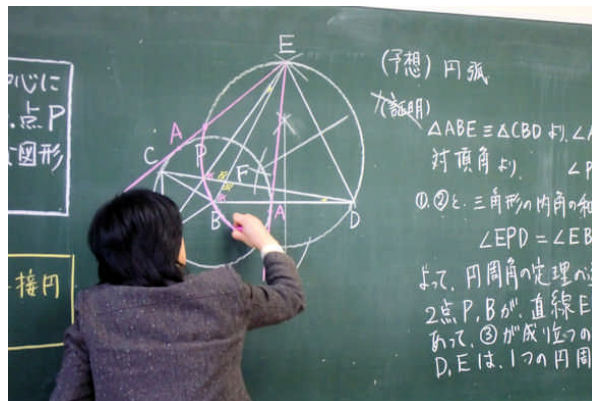 心に
点P
図形
接円
E
A
C
P
F
B
A
D
(予想) 円弧
(証明)
△ABE≡△CBDより、∠A
対頂角より、∠P
①,②と、三角形の内角の和
∠EPD=∠EB
よって、円周角の定理の逆
2点P,Bが、直線E
あって、③が成り立つの
D,Eは、1つの円周